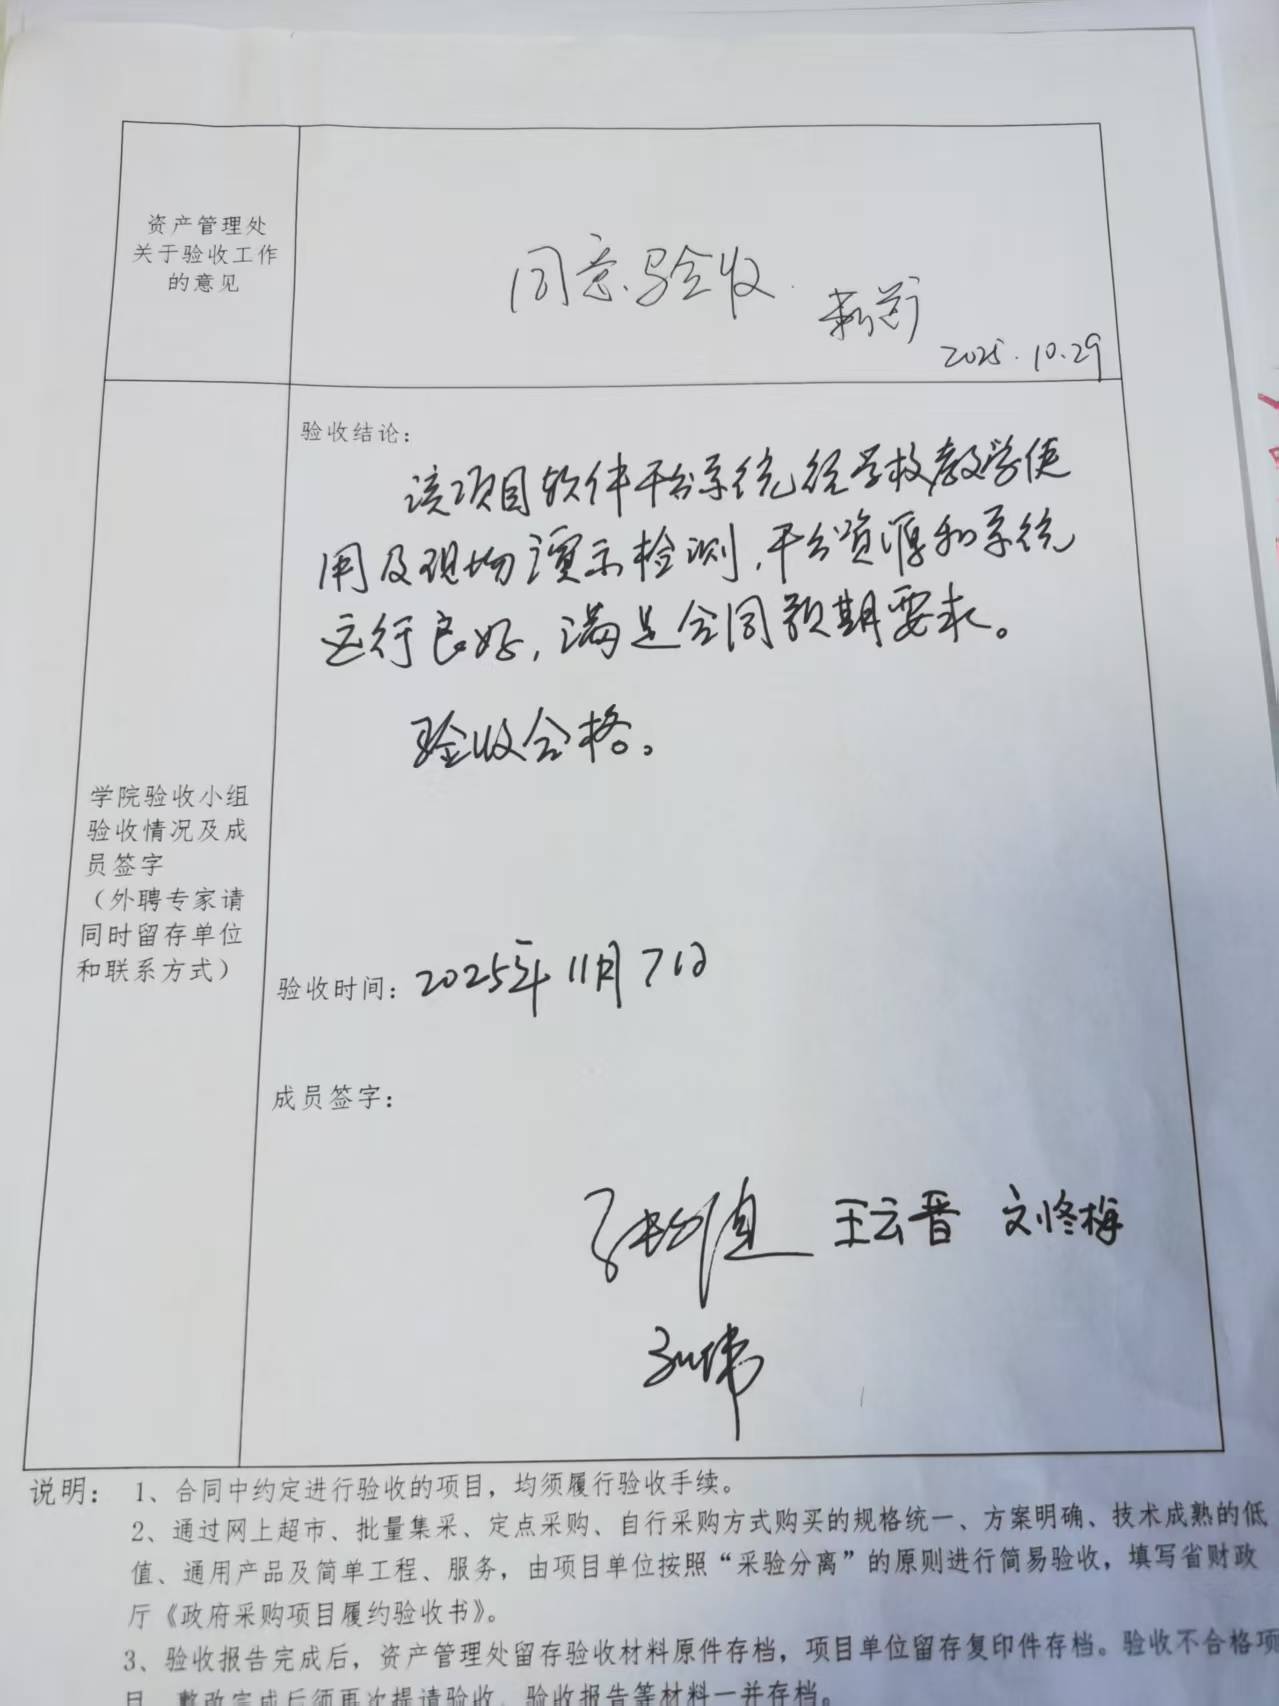 资产管理处
关于验收工作
的意见
同意验收
2025.10.29
验收结论：
该项目软件平台系统经学校教学使
用及现场演示检测，平台资源和系统
运行良好，满足合同预期要求。
验收合格。
学院验收小组
验收情况及成
员签字
（外聘专家请
同时留存单位
和联系方式）
验收时间：2025年11月7日
成员签字：
王云晋 刘冬梅
说明： 1、合同中约定进行验收的项目，均须履行验收手续。
2、通过网上超市、批量集采、定点采购、自行采购方式购买的规格统一、方案明确、技术成熟的低
值、通用产品及简单工程、服务，由项目单位按照“采验分离”的原则进行简易验收，填写省财政
厅《政府采购项目履约验收书》。
3、验收报告完成后，资产管理处留存验收材料原件存档，项目单位留存复印件存档。验收不合格项
目，整改完成后须再次提请验收，验收报告等材料一并存档。